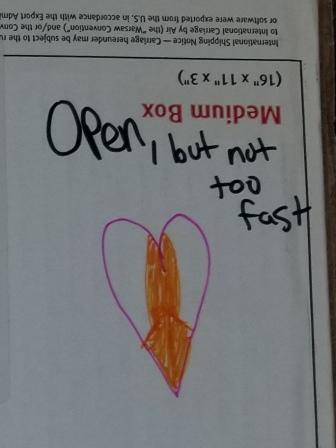 Open, but not
too
fast
Medium Box
(16" x 11" x 3")
International Shipping Notice — Carriage hereunder may be subject to the
to International Carriage by Air (the "Warsaw Convention") and/or the
or software were exported from the U.S. in accordance with the Export